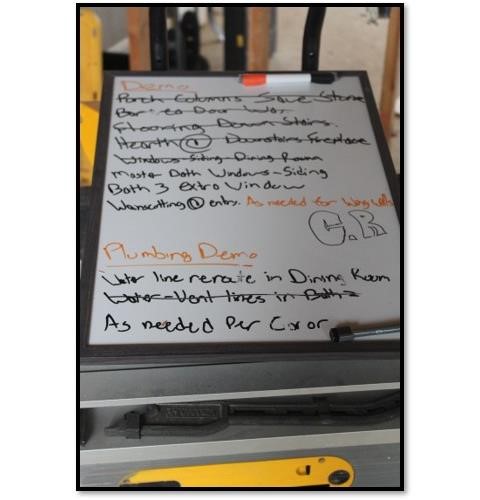 Demo
Porch Columns Save Stone
Bar to Door Way
Flooring Down Stairs.
Hearth 1 Downstairs Fireplace
Windows-Siding-Dining Room
Master Bath Windows-Siding
Bath 3 Extra Window
Wanscotting 1 entry. As needed for Wing walls
C.R
Plumbing Demo
Water line reroute in Dining Room
Water-Vent lines in Bath 3
As needed Per